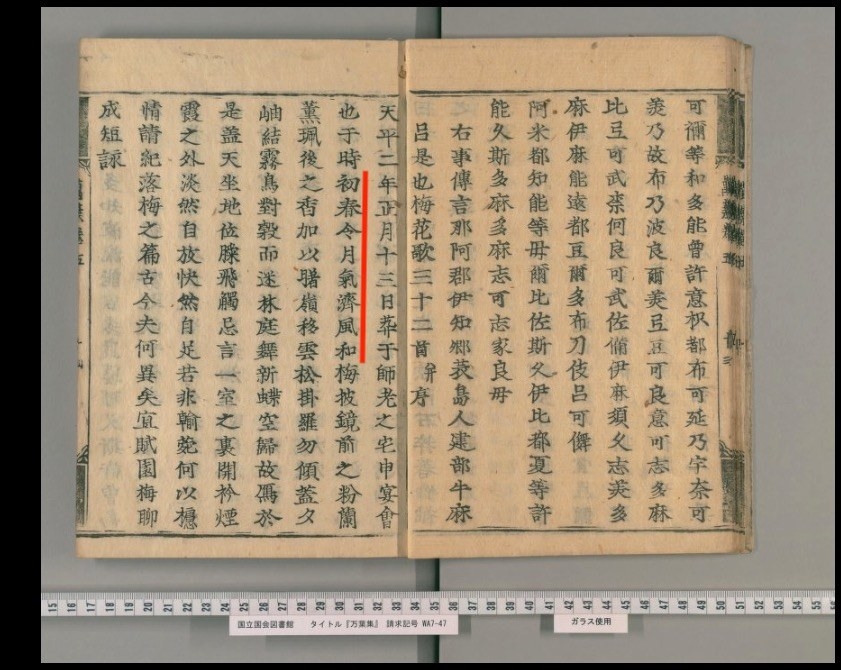 可彌等和多能曾許意枳都布可延乃宇奈可
美乃故布乃波良爾美弖豆可良意可志多麻
比豆可武柰何良可武佐備伊麻須久志美多
麻伊麻能遠都豆爾多布刀伎呂可儛
阿米都知能等毋爾比佐斯久伊比都夏等許
能久斯多麻多麻志可志家良毋
右事傳言那阿郡伊知郷蓑島人建部牛麻
呂是也梅花歌三十二首并序
天平二年正月十三日萃于師老之宅申宴會
也于時初春令月氣淑風和梅披鏡前之粉蘭
薫珮後之香加以曙嶺移雲松掛羅勿傾蓋夕
岫結霧鳥對縠而迷林庭舞新蝶空歸故鴈於
是盖天坐地促膝飛觴忘言一室之裏開衿煙
霞之外淡然自放快然自足若非翰苑何以攄
情請紀落梅之篇古今夫何異矣宜賦園梅聊
成短詠
15 16 17 18 19 20 21 22 23 24 25 26 27 28 29 30 31 32 33 34 35 36 37 38 39 40 41 42 43 44 45 46 47 48 49 50 51 52 53 54 55 56
国立国会図書館 タイトル『万葉集』 請求記号 WA7-47
ガラス使用